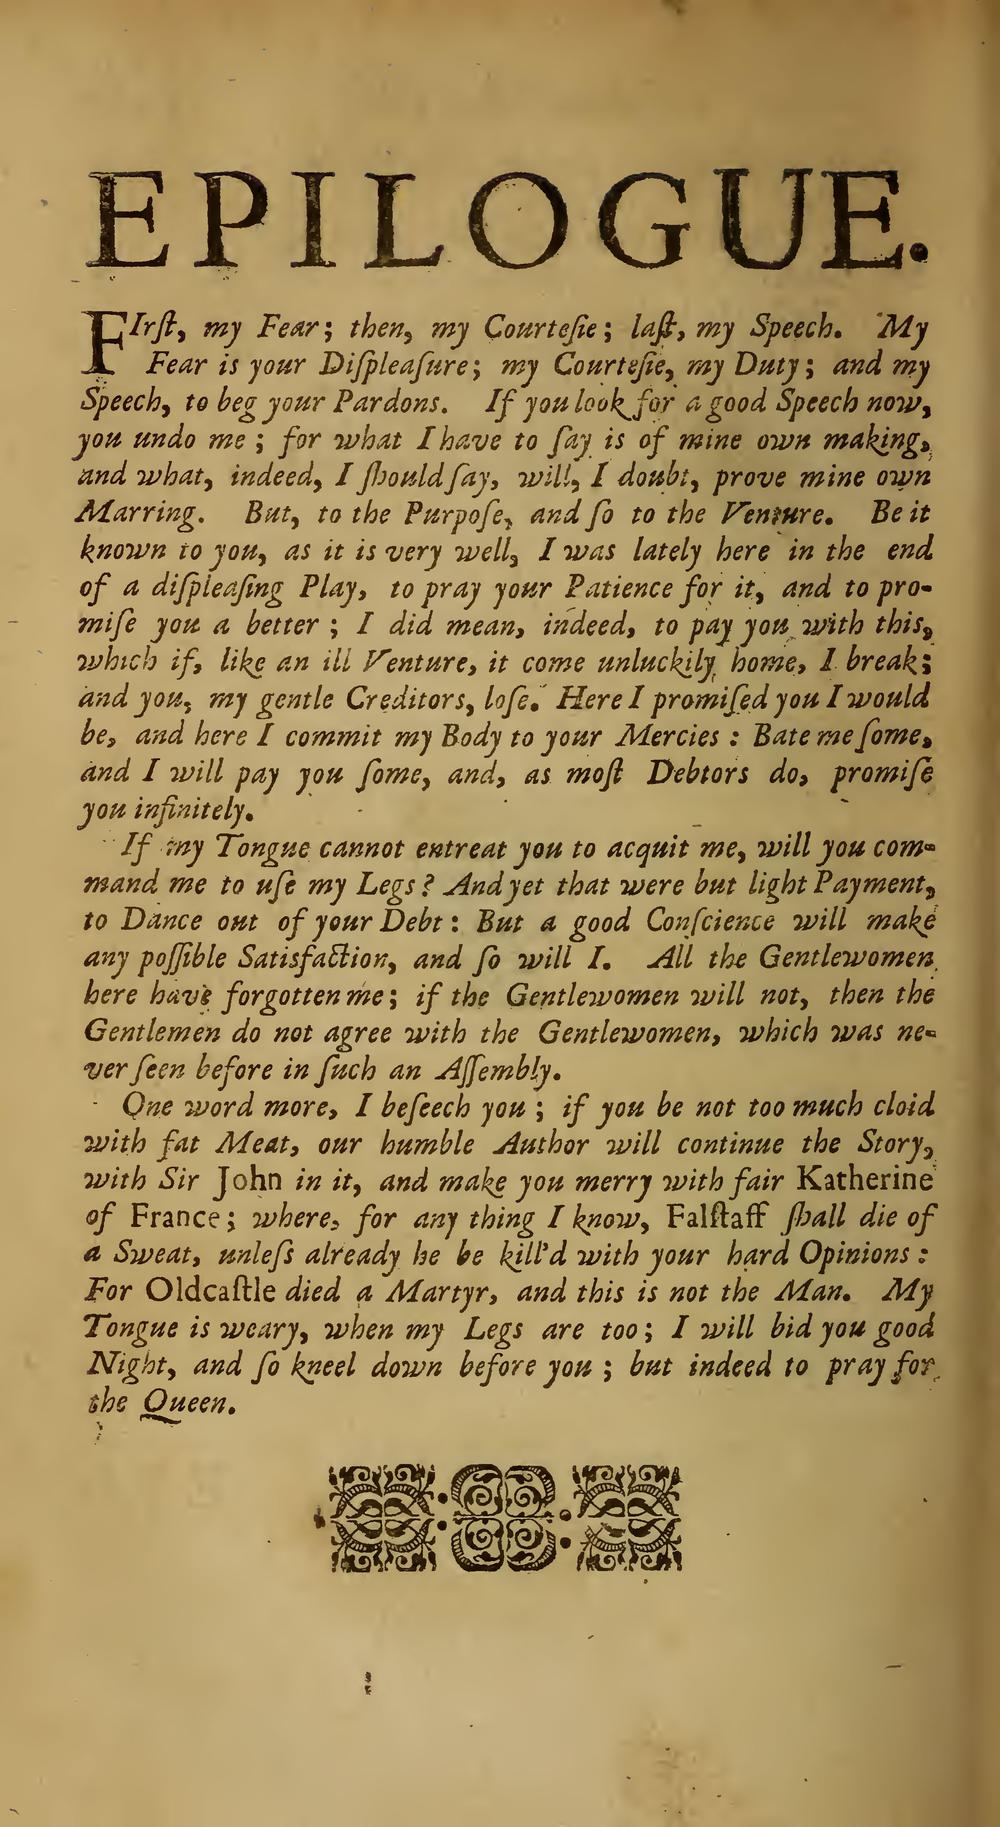 EPILOGUE.
FIrſt, my Fear; then, my Courteſie; laſt, my Speech. My
Fear is your Diſpleaſure; my Courteſie, my Duty; and my
Speech, to beg your Pardons. If you look for a good Speech now,
you undo me; for what I have to ſay is of mine own making,
and what, indeed, I ſhould ſay, will, I doubt, prove mine own
Marring. But, to the Purpoſe, and ſo to the Venture. Be it
known to you, as it is very well, I was lately here in the end
of a diſpleaſing Play, to pray your Patience for it, and to pro-
miſe you a better; I did mean, indeed, to pay you with this,
which if, like an ill Venture, it come unluckily home, I break;
and you, my gentle Creditors, loſe. Here I promiſed you I would
be, and here I commit my Body to your Mercies: Bate me ſome,
and I will pay you ſome, and, as moſt Debtors do, promiſe
you infinitely.
If my Tongue cannot entreat you to acquit me, will you com-
mand me to uſe my Legs? And yet that were but light Payment,
to Dance out of your Debt: But a good Conſcience will make
any poſſible Satisfaction, and ſo will I. All the Gentlewomen
here have forgotten me; if the Gentlewomen will not, then the
Gentlemen do not agree with the Gentlewomen, which was ne-
ver ſeen before in ſuch an Aſſembly.
One word more, I beſeech you; if you be not too much cloid
with fat Meat, our humble Author will continue the Story,
with Sir John in it, and make you merry with fair Katherine
of France; where, for any thing I know, Falſtaff ſhall die of
a Sweat, unleſs already he be kill'd with your hard Opinions:
For Oldcaſtle died a Martyr, and this is not the Man. My
Tongue is weary, when my Legs are too; I will bid you good
Night, and ſo kneel down before you; but indeed to pray for
the Queen.